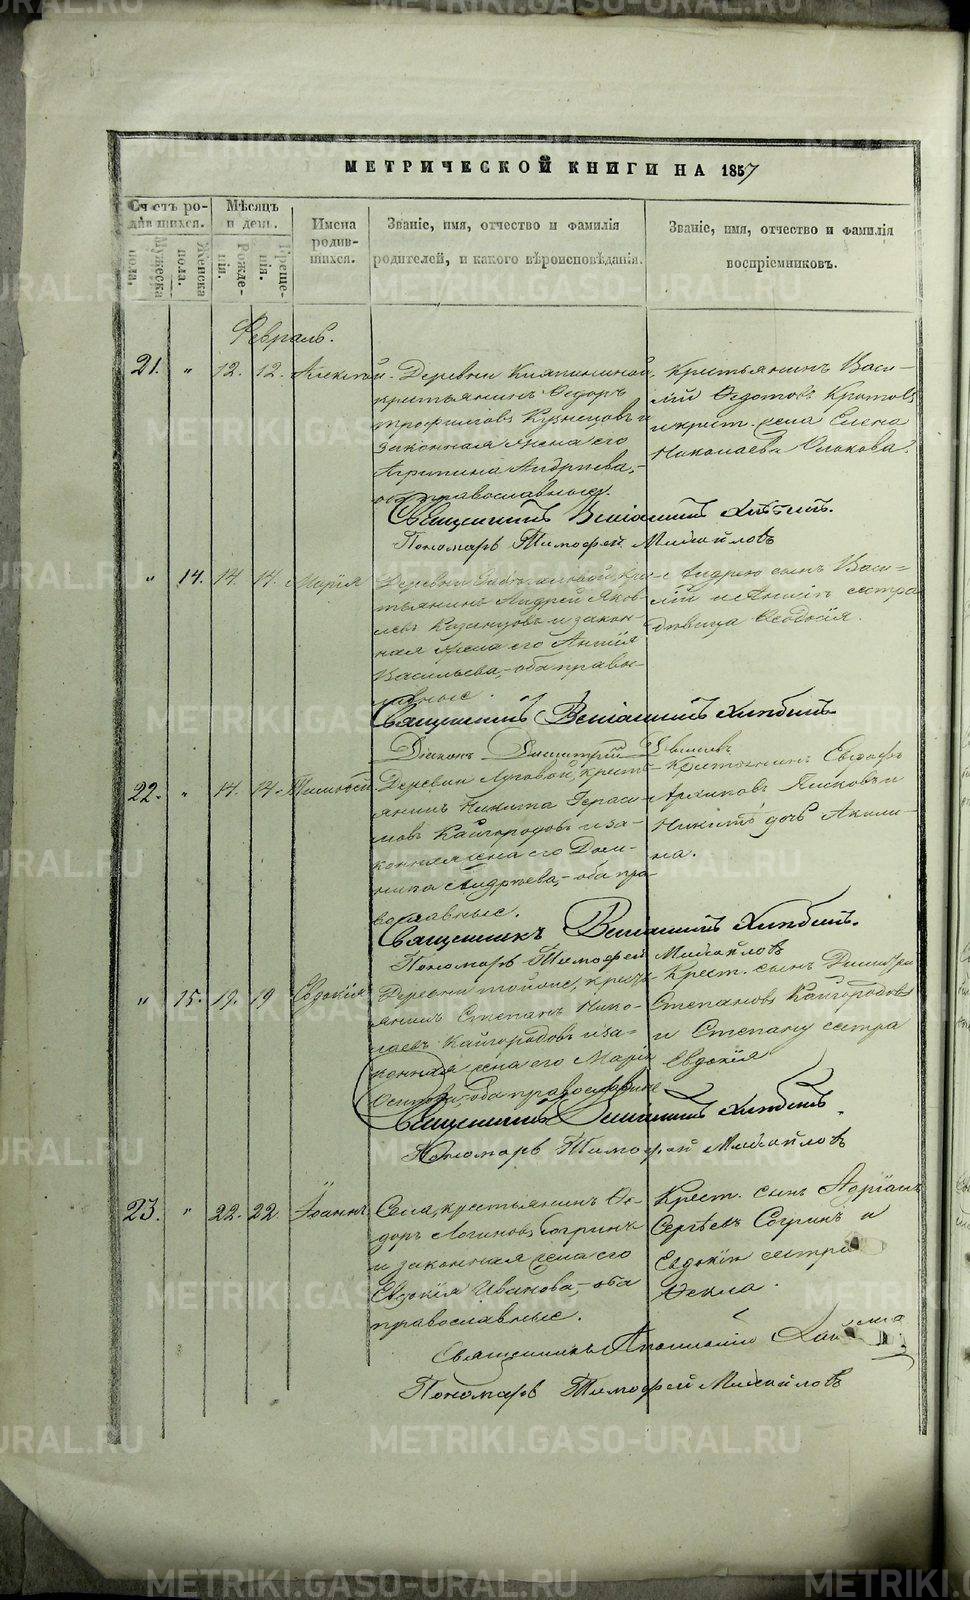 МЕТРИЧЕСКОЙ КНИГИ НА 1857
Счетъ родившихся.
Мужеска пола.
Женска пола.
Мѣсяцъ и день.
Рожденія.
Крещенія.
Имена родившихся.
Званіе, имя, отчество и фамилія
родителей, и какого вѣроисповѣданія.
Званіе, имя, отчество и фамилія
воспріемниковъ.
Февраль.
21. " 12. 12. Алексѣй
Деревни
крестьянинъ Ѳедоръ
Трофимовъ Кузнецовъ и
законная жена его
Агрипина Андреева,-
оба православные.
Крестьянинъ Васи-
лій Ѳедотовъ Кротовъ
и крест. жена Елена
Николаева
Священникъ Веніаминъ Хлѣбинъ.
Пономарь Тимофей Михайловъ
" 14. 14. 14. Марія
Деревни кре-
стьянинъ Андрей Яков-
левъ Казанцовъ и закон-
ная жена его Анисія
Васильева,-оба право-
славные.
Андрею сынъ Васи-
лій и сестра
дѣвица Ѳеодосія.
Священникъ Веніаминъ Хлѣбинъ
Діаконъ Димитрій
22. " 14. 14. Тимофей
Деревни Луговой, кресть-
янинъ Никита Гераси-
мовъ Кайгородовъ и за-
конная жена его Дом-
ника Андреева,- оба пра-
вославные.
Крестьянинъ
Архиповъ Писковъ и
Никиты дочь Акили-
на.
Священникъ Веніаминъ Хлѣбинъ.
Пономарь Тимофей Михайловъ
" 15. 19. 19 Евдокія
Деревни тойже, кресть-
янинъ Степанъ Нико-
лаевъ Кайгородовъ и за-
конная жена его Марія
Осипова,-оба православные
Крест. сынъ Димитрій
Степановъ Кайгородовъ
и Степану сестра
Евдокія
Священникъ Веніаминъ Хлѣбинъ.
Пономарь Тимофей Михайловъ
23. " 22. 22. Іоаннъ
Села, крестьянинъ Ѳе-
доръ Логиновъ Согринъ
и законная жена его
Евдокія Иванова,-оба
православные.
Крест. сынъ Адріанъ
Сергѣевъ Согринъ и
Евдокіи сестра
Ѳекла.
Священникъ
Пономарь Тимофей Михайловъ
METRIKI.GASO-URAL.RU